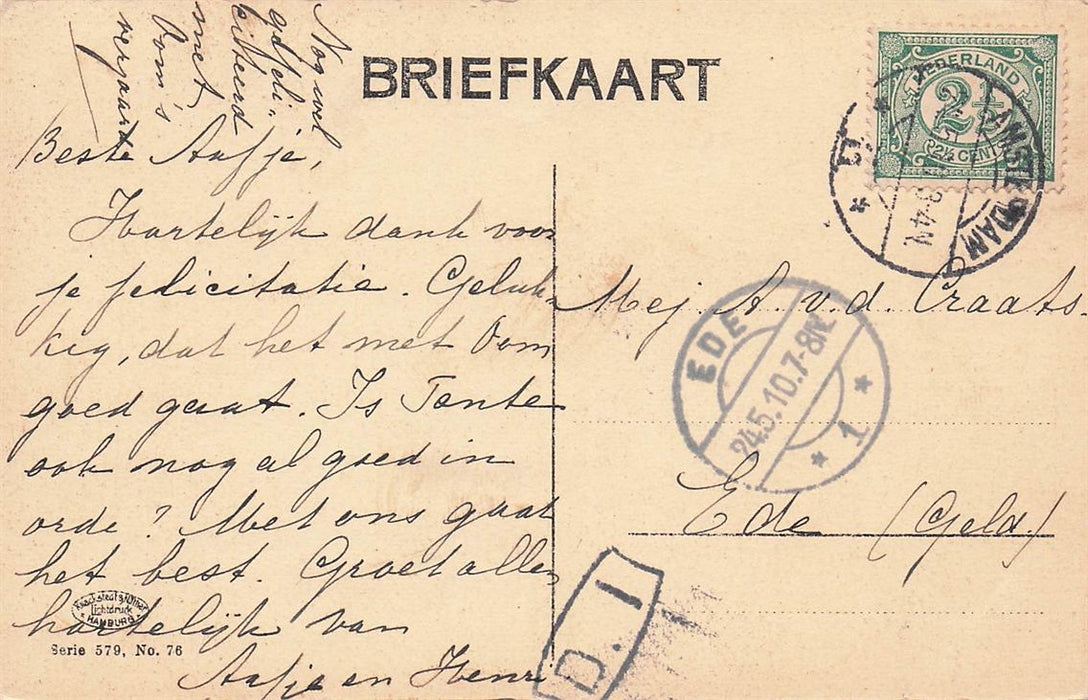 Nog wel
gefeli-
citeerd
met
Oom's
verjaard
BRIEFKAART
NEDERLAND
2½
2½ CENT
AMSTERDAM
3-4N
Beste Aafje,
Hartelijk dank voor
je felicitatie. Geluk-
kig, dat het met Oom
goed gaat. Is Tante
ook nog al goed in
orde? Met ons gaat
het best. Groet allen
hartelijk van
Aafje en Henri
Mej. A. v. d. Craats.
Ede (Geld.)
EDE
24.5.10.7-8N.
1
D. 1
Knackstedt & Näther
Lichtdruck
HAMBURG
Serie 579, No. 76